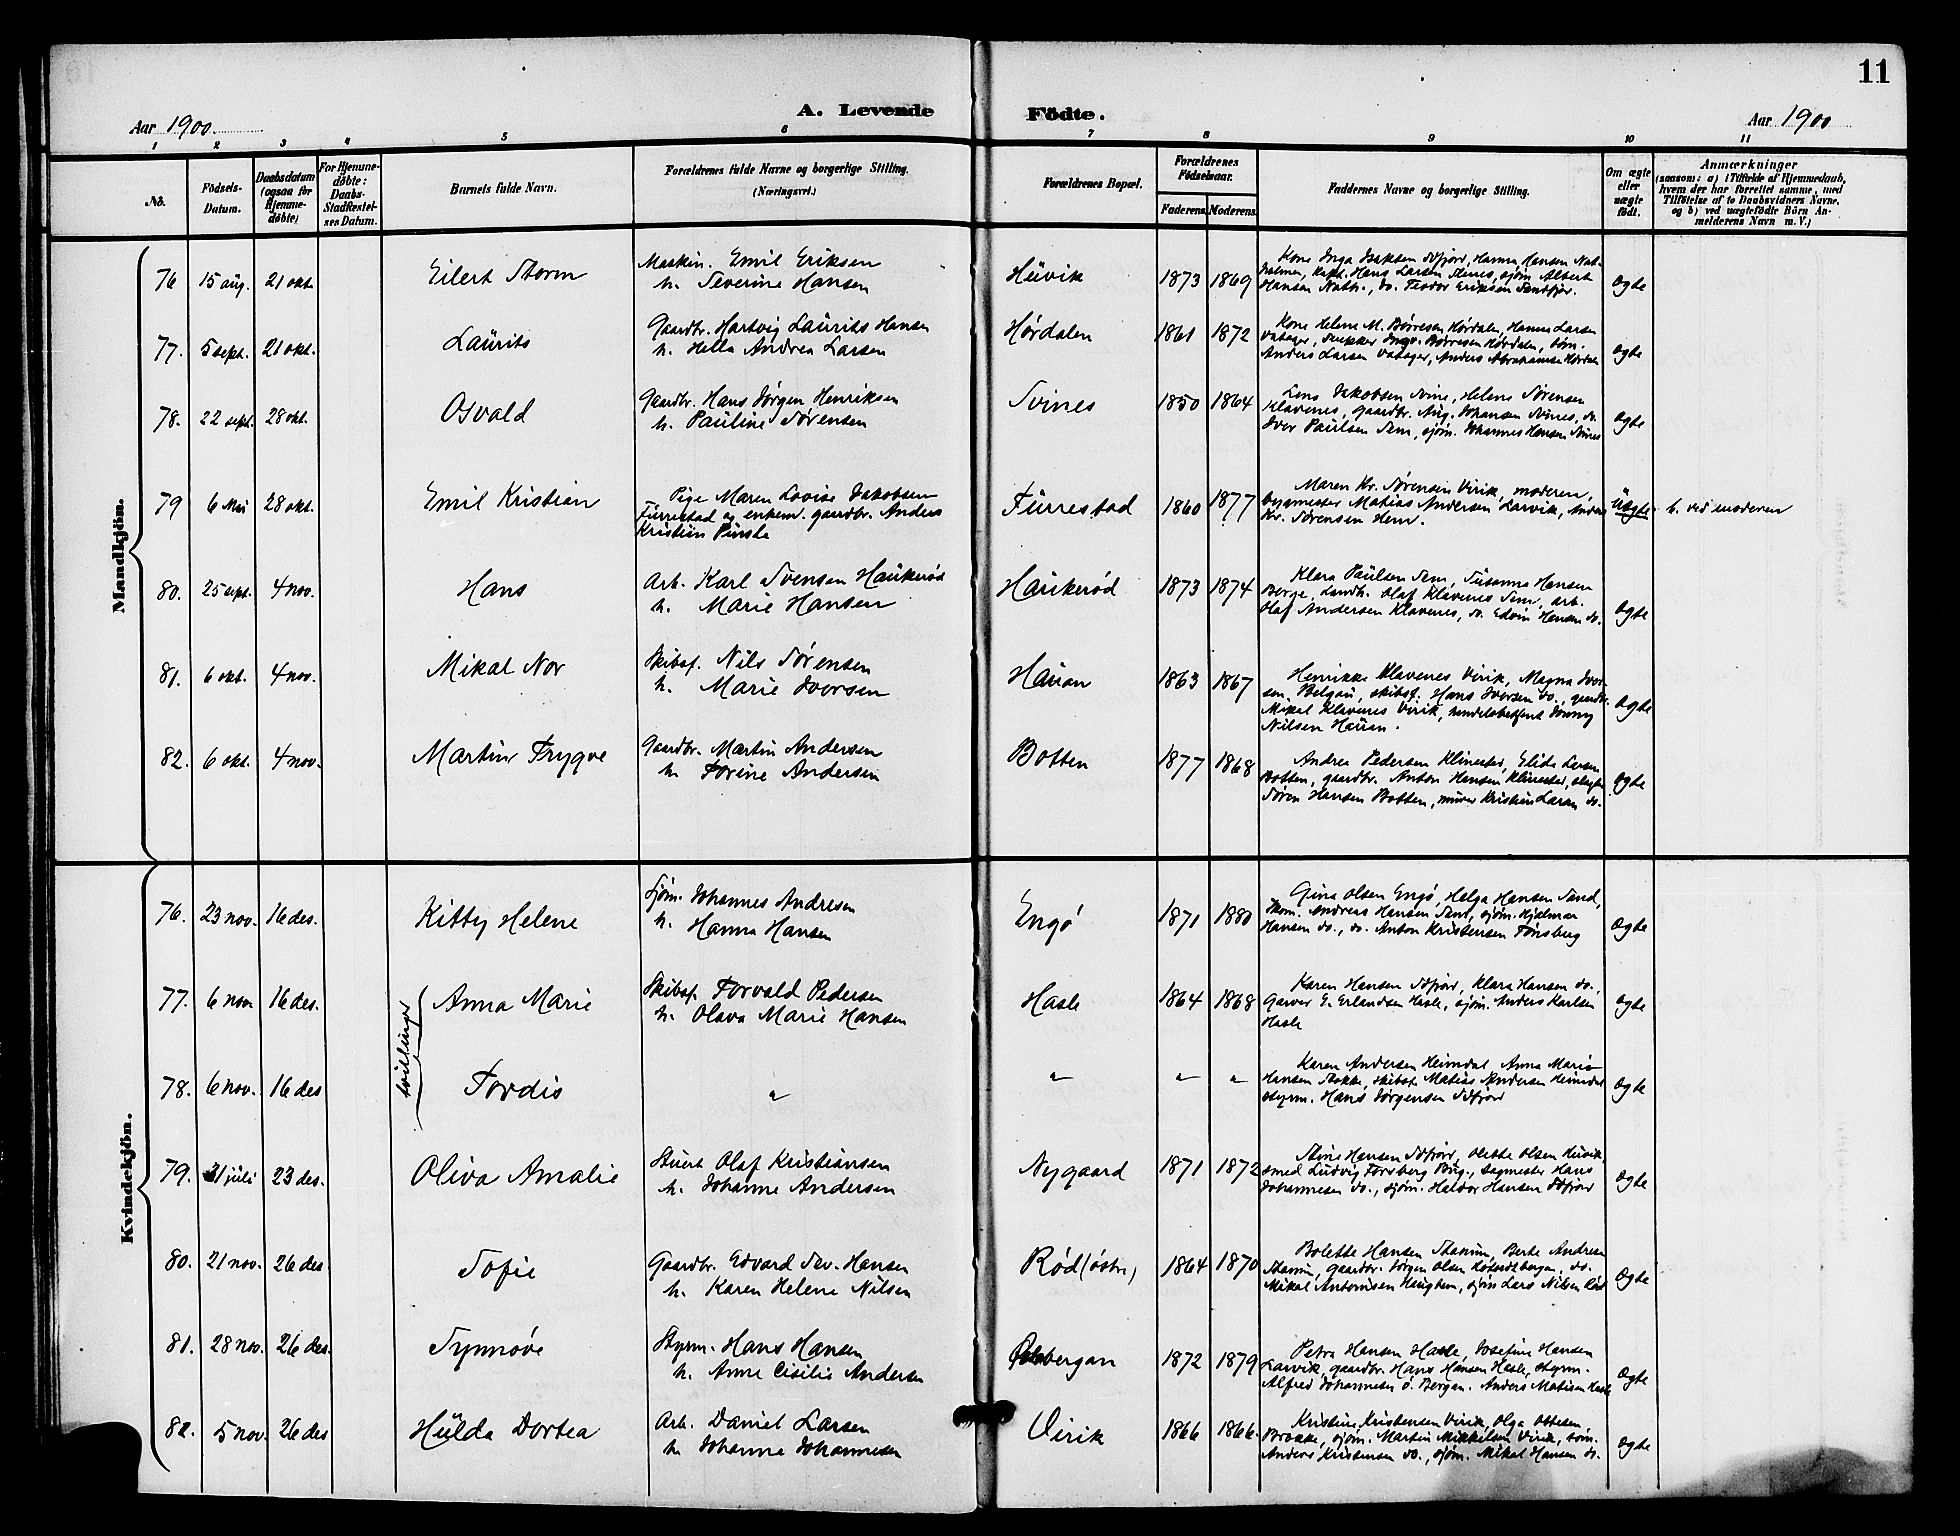 11
A. Levende Födte.
Aar 1900.
Aar 1900
1 2 3 4 5 6 7 8 9 10 11
No.
Födsels-Datum.
Daabsdatum (ogsaa for Hjemmedøbte)
For Hjemmedøbte: Daabs-Stadfæstelses Datum.
Barnets fulde Navn.
Forældrenes fulde Navne og borgerlige Stilling.
(Næringsvei.)
Forældrenes Bopæl.
Forældrenes Fødselsaar.
Faderens. Moderens.
Faddernes Navne og borgerlige Stilling.
Om ægte eller uægte födt.
Anmærkninger
(saasom: a) i Tilfælde af Hjemmedaab,
hvem der har forrettet samme, med
Tilföielse af to Daabsvidners Navne,
og b) ved uægtefödte Börn An-
melderens Navn m. V.)
Mandkjön.
76 15 aug. 21 okt. Eilert Storm
Maskin. Emil Eriksen
h. Severine Hansen
Hüvik 1873 1869
Kone Inga Isaksen Sdfjord, Hanna Hansen Nat-
holmen, kapt. Hans Larsen Stenes, sjöm. Albert
Hansen Nath., do. Teodor Eriksen Sandfjor.
Ægte
77. 5 sept. 21 okt. Laurits
Gaardbr. Hartvig Laurits Hansen
h. Hella Andrea Larsen
Hørdalen 1861 1872
Kone Helene M. Børresen Hørdalen, Hanna Larsen
Vatager, snekker Ingv. Børresen Hørdalen, tøm.
Anders Larsen Vatager, Anders Abrahamsen Hørdalen
Ægte
78. 22 sept. 28 okt. Osvald
Gaardbr. Hans Jørgen Henriksen
h. Pauline Sørensen
Svines 1850 1864
Lena Jakobsen Svine, Helene Sørensen
Klavenes, gaardbr. Aug. Johansen Svines, do.
Iver Paulsen Sem, sjöm. Johannes Hansen Svines
Ægte
79 6 Mai 28 okt. Emil Kristian
Pige Maren Lovise Jakobsen
Furrestad og enkem. gaardbr. Anders
Kristian Pinsle
Furrestad 1860 1877
Maren Kr. Sørensen Virik, moderen,
bygmester Matias Andersen Larvik, Anders
Kr. Sørensen Hem.
Uægte b. ved moderen
80. 25 sept. 4 nov. Hans
Arb. Karl Svensen Haukerød
h. Marie Hansen
Haukerød 1873 1874
Klara Paulsen Sem, Susanna Hansen
Berge, Landh. Olaf Klavenes Sem, arb.
Olaf Andersen Klavenes, do. Edvin Hansen do.
Ægte
81. 6 okt. 4 nov. Mikal Nor
Skibsf. Nils Sørensen
h. Marie Iversen
Hauan 1863 1867
Henrikke Klavenes Virik, Magna Iver-
sen Belgau, skibsf. Hans Iversen do., gaardbr.
Mikal Klavenes Virik, handelsbetjent Jonny
Nilsen Hauan.
Ægte
82. 6 okt. 4 nov. Martin Trygve
Gaardbr. Martin Andersen
h. Torine Andersen
Botten 1877 1868
Andrea Pedersen Klinestad, Elida Larsen
Botten, gaardbr. Anton Hansen Klinestad,
Søren Hansen Botten, murer Kristian Larsen do.
Ægte
Kvindekjön.
76. 23 nov. 16 des. Kitty Helene
Sjöm. Johannes Andresen
h. Hanna Hansen
Engø 1871 1880
Gina Olsen Engø, Helga Hansen Sand,
Skom. Andreas Hansen Sand, sjöm. Hjalmar
Hansen do., do. Anton Kristensen Tønsberg
Ægte
tvillinger
77. 6 nov. 16 des. Anna Marie
Skibsf. Torvald Pedersen
h. Olava Marie Hansen
Hasle 1864 1868
Karen Hansen Sdfjord, Klara Hansen do.,
Garver E. Erlandsen Hasle, sjöm. Anders Karlsen
Hasle
Ægte
78. 6 nov. 16 des Tordis
" " " "
Karen Andersen Heimdal, Anna Marie
Hansen Stokke, skibsf. Matias Andersen Heimdal
styrm. Hans Jørgensen Sdfjord
Ægte
79. 31 juli 23 des. Oliva Amalie
Stuert Olaf Kristiansen
h. Johanne Andersen
Nygaard 1871 1872
Stine Hansen Sdfjord, Olette Olsen Huvik,
smed Ludvig Forsberg Bug., sagmester Hans
Johannesen do., sjöm. Haldor Hansen Sdfjord
Ægte
80. 21 nov. 26 des Sofie
Gaardbr. Edvard Sev. Hansen
h. Karen Helene Nilsen
Rød (østre) 1864 1870
Bolette Hansen Stanum, Berte Andresen
Stanum, gaardbr. Jørgen Olsen, do.
Mikal Antonisen Haughem, sjöm Lars Nilsen Rød
Ægte
81. 28 nov. 26 des. Synnøve
Styrm. Hans Hansen
h. Anne Cisilie Andersen
bergan 1872 1879
Petra Hansen Hasle, Josefine Hansen
Larvik, gaardbr. Hans Hansen Hasle, styrm.
Alfred Johannesen ö. Bergan. Anders Matisen Hasle
Ægte
82. 5 nov. 26 des Hulda Dortea
Arb. Daniel Larsen
h. Johanna Johannesen
Virik 1866 1866.
Kristine Kristensen Virik, Olga Ottesen
Brække, sjöm. Martin Mikkelsen Virik, töm.
Anders Kristensen do., sjöm. Mikal Hansen do.
Ægte